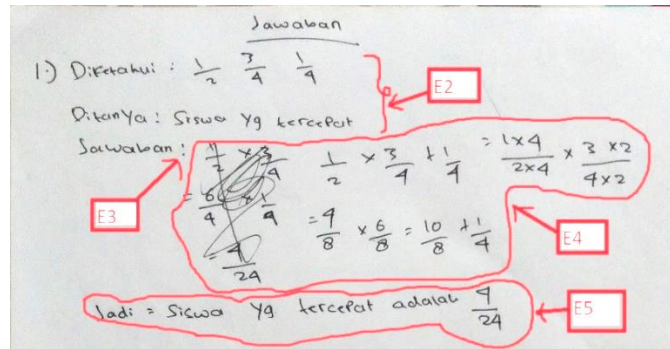 Jawaban
1.) Diketahui : 1/2 3/4 1/4
E2
Ditanya : Siswa yg tercepat
Jawaban : 1/2 × 3/4 1/2 × 3/4 + 1/4 = 1×4/2×4 × 3×2/4×2
= 6/4 × 1/4
E3
= 4/8 × 6/8 = 10/8 + 1/4
E4
= 4/24
Jadi = Siswa yg tercepat adalah 4/24
E5